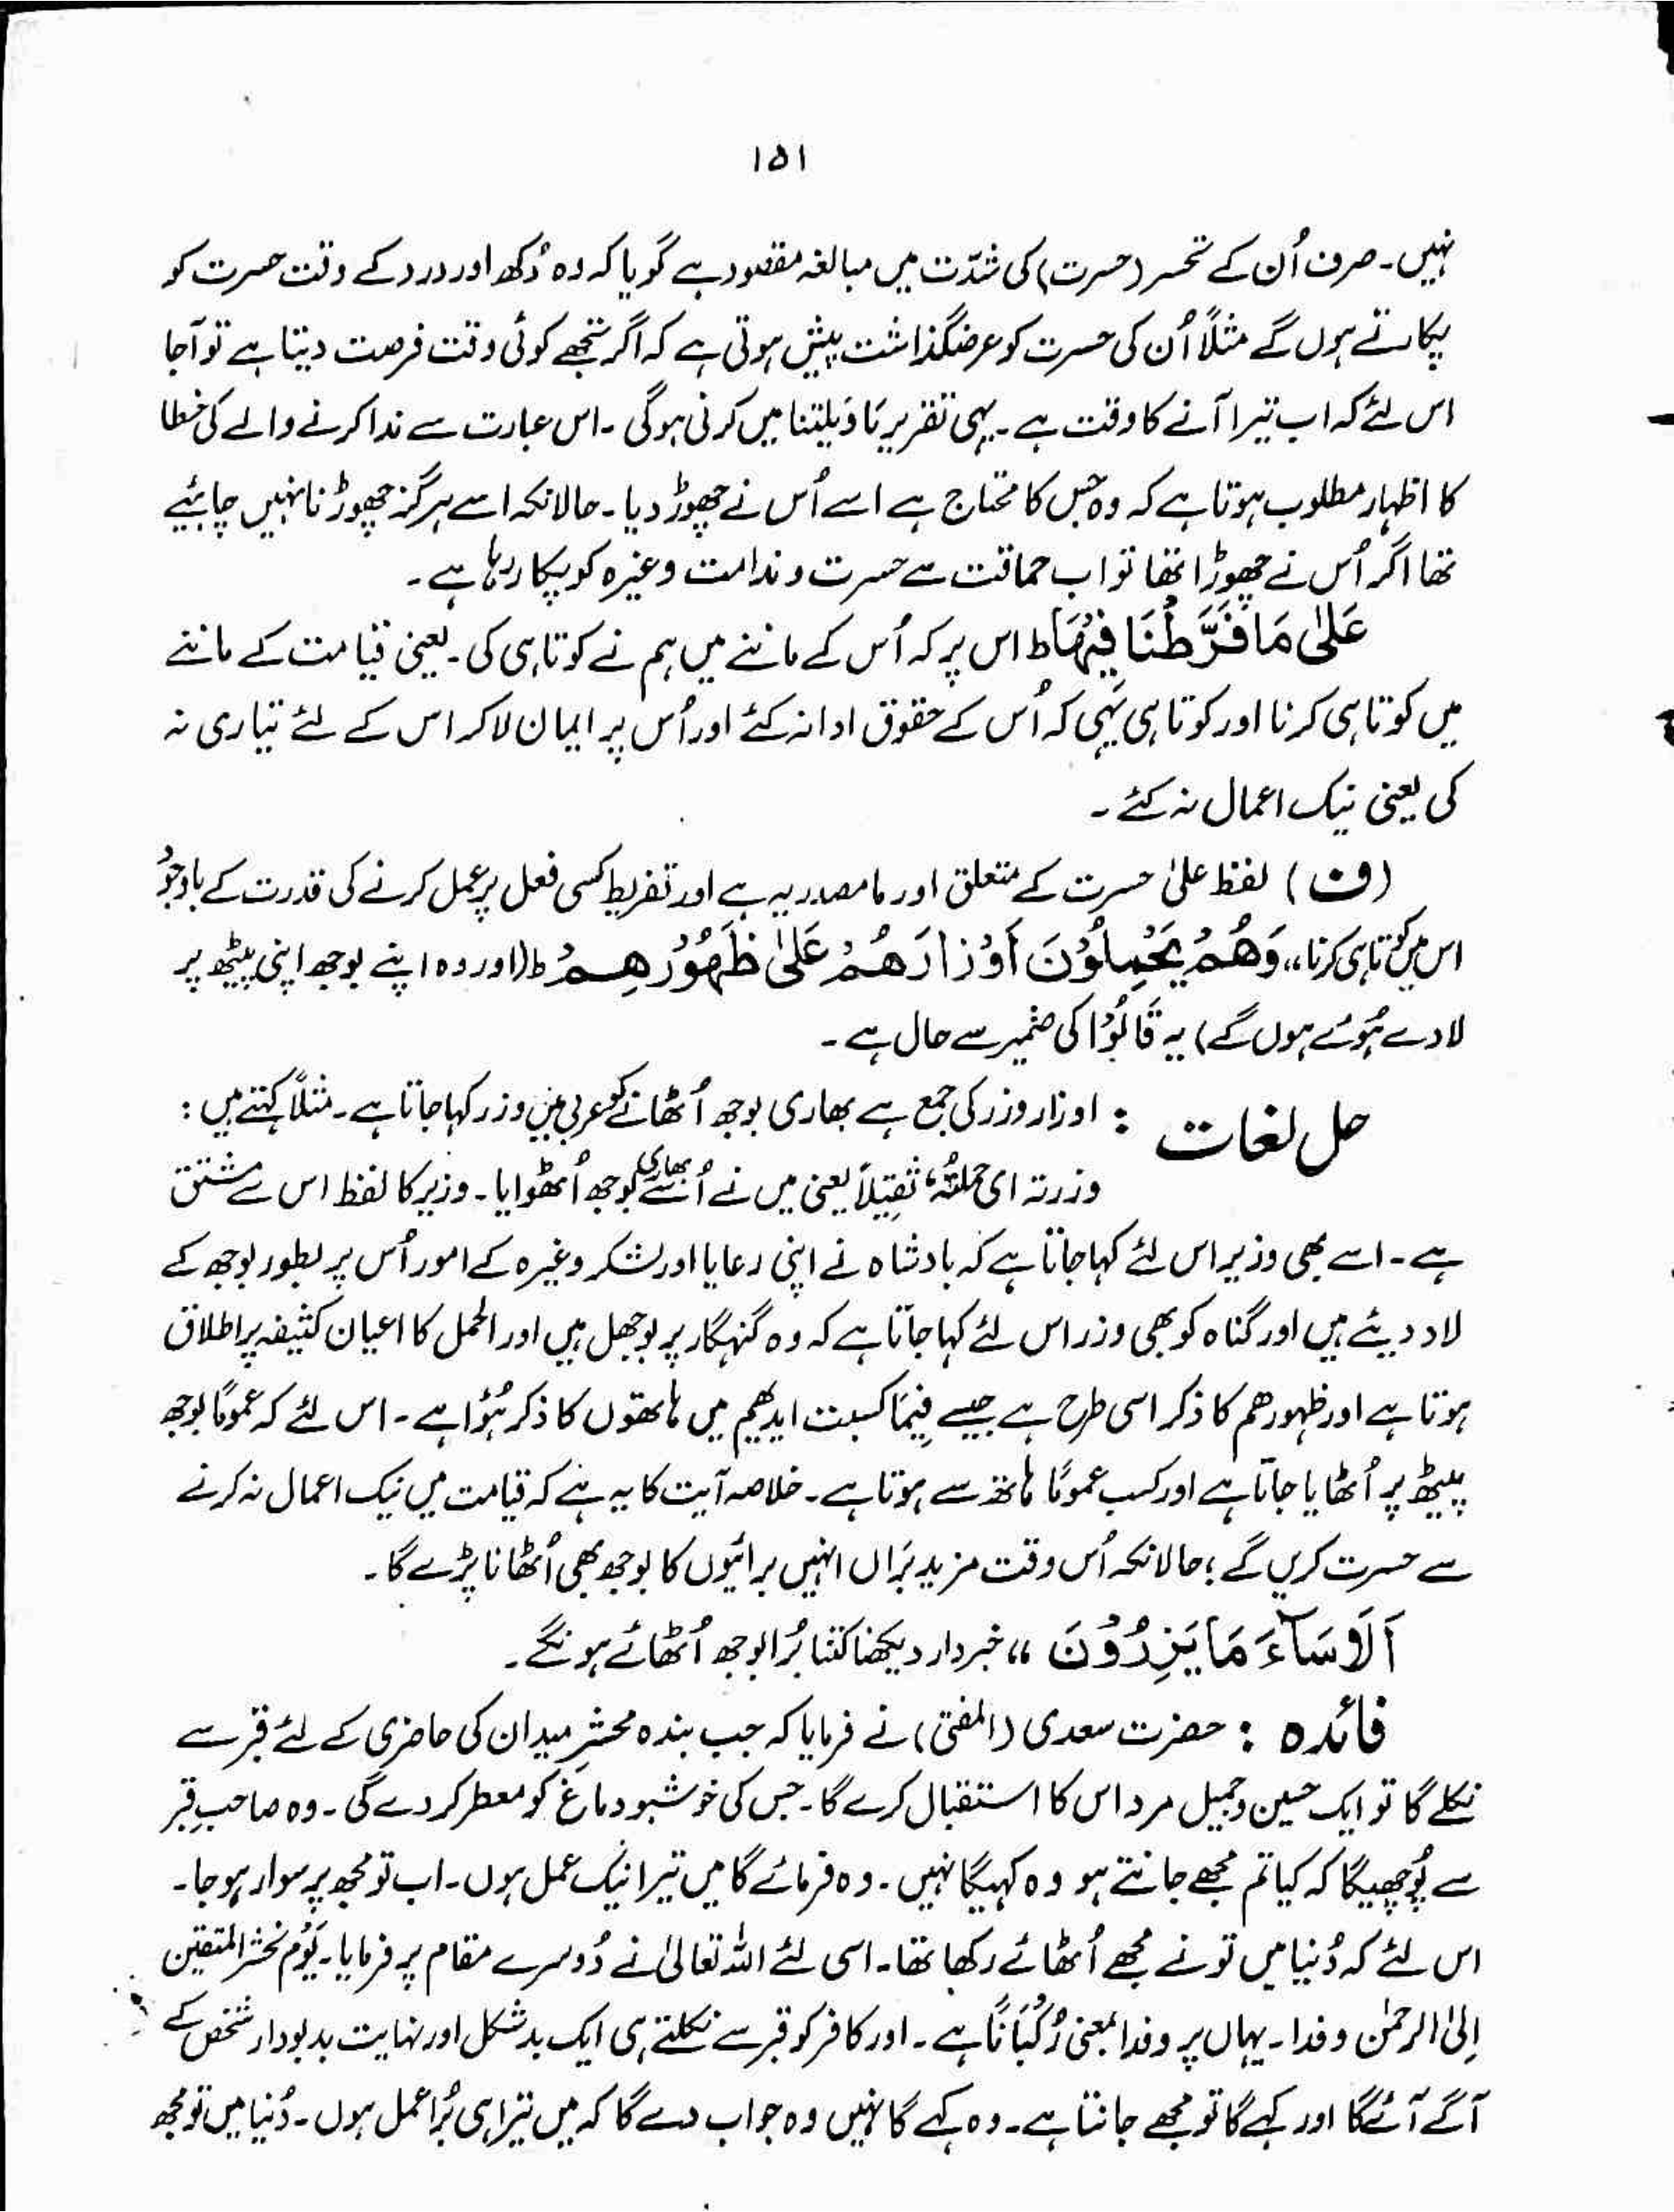 ۱۵۱
نہیں۔ صرف اُن کے تحسر (حسرت) کی شدّت میں مبالغہ مقصود ہے گویا کہ وہ دُکھ اور درد کے وقت حسرت کو
پکارتے ہوں گے مثلًا اُن کی حسرت کو عرضگذاشت پیش ہوتی ہے کہ اگر تجھے کوئی وقت فرصت دیتا ہے تو آجا
اس لئے کہ اب تیرا آنے کا وقت ہے۔ یہی تقریر یَا وَیلیتنا میں کرنی ہوگی ۔ اس عبارت سے ندا کرنے والے کی خطا
کا اظہار مطلوب ہوتا ہے کہ وہ جس کا محتاج ہے اسے اُس نے چھوڑ دیا۔ حالانکہ اسے ہرگز چھوڑنا نہیں چاہئیے
تھا اگر اُس نے چھوڑا تھا تو اب حماقت سے حسرت و ندامت وغیرہ کو پکار رہا ہے۔
عَلیٰ مَا فَرَّطْنَا فِیْہَا ط اس پر کہ اُس کے ماننے میں ہم نے کوتاہی کی۔ یعنی قیامت کے ماننے
میں کوتاہی کرنا اور کوتاہی یہی کہ اُس کے حقوق ادا نہ کئے اور اُس پر ایمان لاکر اس کے لئے تیاری نہ
کی یعنی نیک اعمال نہ کئے ۔
(ف) لفظ علیٰ حسرت کے متعلق اور ما مصدریہ ہے اور تفریط کسی فعل پر عمل کرنے کی قدرت کے باوجود
اس میں کوتاہی کرنا،، وَھُمْ یَحْمِلُوْنَ اَوْزَارَھُمْ عَلیٰ ظُہُوْرِھِمْ ط (اور وہ اپنے بوجھ اپنی پیٹھ پر
لادے ہُوئے ہوں گے) یہ قَالُوْا کی ضمیر سے حال ہے ۔
حل لغات : اوزار وزر کی جمع ہے بھاری بوجھ اُٹھانے کو عربی میں وزر کہا جاتا ہے۔ مثلًا کہتے ہیں :
وزرتہ ای حملتُہٗ ثقِیلاً یعنی میں نے اُسے بھاری بوجھ اُٹھوایا۔ وزیر کا لفظ اس سے مشتق
ہے۔ اسے بھی وزیر اس لئے کہا جاتا ہے کہ بادشاہ نے اپنی رعایا اور لشکر وغیرہ کے امور اُس پر بطور بوجھ کے
لاد دیئے ہیں اور گناہ کو بھی وزر اس لئے کہا جاتا ہے کہ وہ گنہگار پر بوجھل ہیں اور الحمل کا اعیان کثیفہ پر اطلاق
ہوتا ہے اور ظہورھم کا ذکر اسی طرح ہے جیسے فِیمَا کسبت ایدھیم میں ہاتھوں کا ذکر ہُوا ہے۔ اس لئے کہ عمومًا بوجھ
پیٹھ پر اُٹھایا جاتا ہے اور کسب عمومًا ہاتھ سے ہوتا ہے۔ خلاصہ آیت کا یہ ہے کہ قیامت میں نیک اعمال نہ کرنے
سے حسرت کریں گے؛ حالانکہ اُس وقت مزید بَراں انہیں برائیوں کا بوجھ بھی اُٹھانا پڑے گا ۔
اَلَا سَآءَ مَا یَزِرُوْنَ ،، خبردار دیکھنا کتنا بُرا بوجھ اُٹھائے ہونگے۔
فائدہ : حضرت سعدی (المفتی) نے فرمایا کہ جب بندہ محشرِ میدان کی حاضری کے لئے قبر سے
نکلے گا تو ایک حسین و جمیل مرد اس کا استقبال کرے گا۔ جس کی خوشبو دماغ کو معطر کر دے گی ۔ وہ صاحبِ قبر
سے پُوچھیگا کہ کیا تم مجھے جانتے ہو وہ کہیگا نہیں ۔ وہ فرمائے گا میں تیرا نیک عمل ہوں۔ اب تو مجھ پر سوار ہوجا۔
اس لئے کہ دُنیا میں تو نے مجھے اُٹھائے رکھا تھا۔ اسی لئے اللہ تعالیٰ نے دُوسرے مقام پر فرمایا۔ یَوْم نحشر المتقین
اِلیٰ الرحمٰن وفدا۔ یہاں پر وفدا بمعنی رُکْبَانًا ہے۔ اور کافر کو قبر سے نکلتے ہی ایک بدشکل اور نہایت بدبودار شخص کے
آگے آئےگا اور کہے گا تو مجھے جانتا ہے۔ وہ کہے گا نہیں وہ جواب دے گا کہ میں تیرا ہی بُرا عمل ہوں۔ دُنیا میں تو مجھ